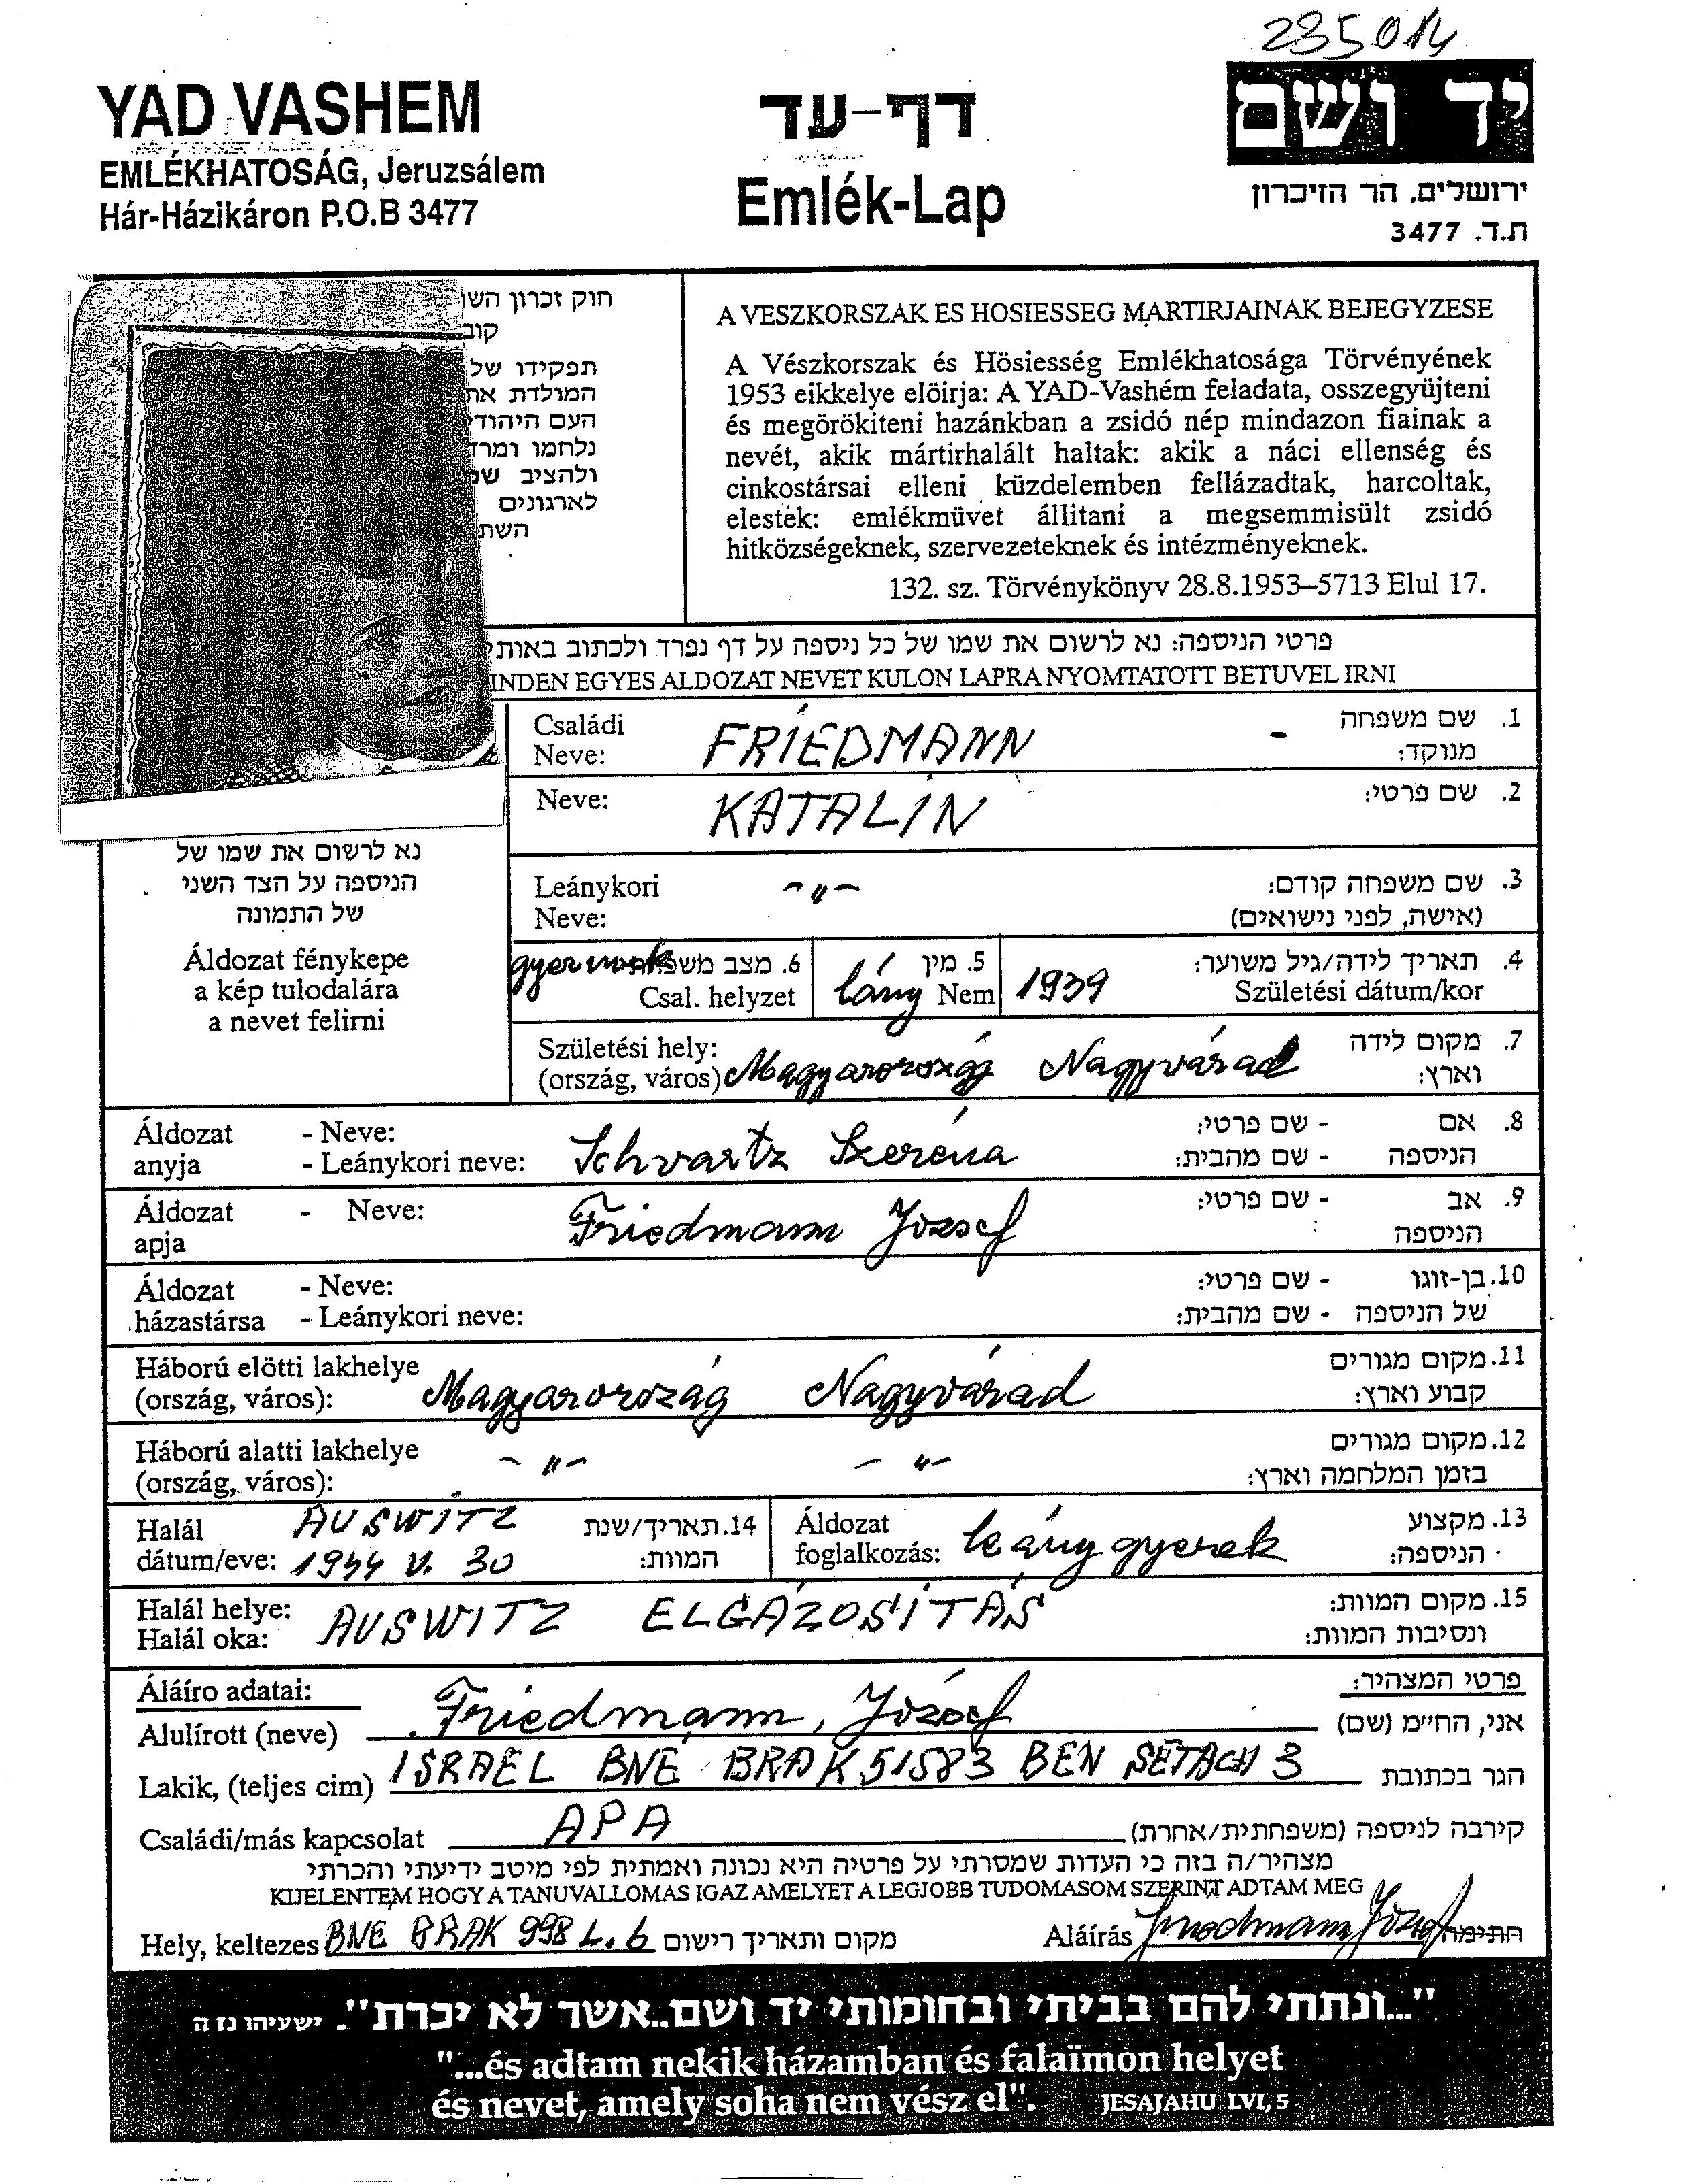 235014
YAD VASHEM
EMLÉKHATOSÁG, Jeruzsálem
Hár-Házikáron P.O.B 3477
דף-עד
Emlék-Lap
יד ושם
ירושלים, הר הזיכרון
ת.ד. 3477
חוק זכרון השו
קוב
תפקידו של
המולדת את
העם היהודי
נלחמו ומרד
ולהציב שם
לארגונים
השת
A VESZKORSZAK ES HOSIESSEG MARTIRJAINAK BEJEGYZESE
A Vészkorszak és Hösiesség Emlékhatosága Törvényének
1953 eikkelye elöirja: A YAD-Vashém feladata, osszegyüjteni
és megörökiteni hazánkban a zsidó nép mindazon fiainak a
nevét, akik mártirhalált haltak: akik a náci ellenség és
cinkostársai elleni küzdelemben fellázadtak, harcoltak,
elestek: emlékmüvet állitani a megsemmisült zsidó
hitközségeknek, szervezeteknek és intézményeknek.
132. sz. Törvénykönyv 28.8.1953–5713 Elul 17.
פרטי הניספה: נא לרשום את שמו של כל ניספה על דף נפרד ולכתוב באותי
INDEN EGYES ALDOZAT NEVET KULON LAPRA NYOMTATOTT BETUVEL IRNI
Családi Neve: FRIEDMANN - 1. שם משפחה מנוקד:
Neve: KATALIN 2. שם פרטי:
Leánykori Neve: -〃- 3. שם משפחה קודם: (אישה, לפני נישואים)
נא לרשום את שמו של
הניספה על הצד השני
של התמונה
Áldozat fényképe
a kép tulodalára
a nevet felirni
gyermek 6. מצב משפחתי Csal. helyzet lány 5. מין Nem 1939 4. תאריך לידה/גיל משוער: Születési dátum/kor
Születési hely: (ország, város) Magyarország Nagyvárad 7. מקום לידה וארץ:
Áldozat anyja - Neve: - Leánykori neve: Schvartz Szeréna 8. אם הניספה - שם פרטי: - שם מהבית:
Áldozat apja - Neve: Friedmann József 9. אב הניספה - שם פרטי:
Áldozat házastársa - Neve: - Leánykori neve: 10. בן-זוגו של הניספה - שם פרטי: - שם מהבית:
Háború elötti lakhelye (ország, város): Magyarország Nagyvárad 11. מקום מגורים קבוע וארץ:
Háború alatti lakhelye (ország, város): -〃- -〃- 12. מקום מגורים בזמן המלחמה וארץ:
Halál dátum/eve: AUSWITZ 1944 V. 30 14. תאריך/שנת המוות: Áldozat foglalkozás: leány gyerek 13. מקצוע הניספה:
Halál helye: Halál oka: AUSWITZ ELGÁZOSITÁS 15. מקום המוות: ונסיבות המוות:
Áláíro adatai: פרטי המצהיר:
Alulírott (neve) Friedmann, József אני, החי״מ (שם)
Lakik, (teljes cim) ISRAEL BNE BRAK 51583 BEN SETACH 3 הגר בכתובת
Családi/más kapcsolat APA קירבה לניספה (משפחתית/אחרת)
מצהיר/ה בזה כי העדות שמסרתי על פרטיה היא נכונה ואמתית לפי מיטב ידיעתי והכרתי
KIJELENTEM HOGY A TANUVALLOMAS IGAZ AMELYET A LEGJOBB TUDOMASOM SZERINT ADTAM MEG
Hely, keltezes BNE BRAK 998 4. 6 מקום ותאריך רישום Aláírás Friedmann József חתימה
"...ונתתי להם בביתי ובחומותי יד ושם..אשר לא יכרת". ישעיהו נז ה
"...és adtam nekik házamban és falaïmon helyet
és nevet, amely soha nem vész el". JESAJAHU LVI, 5